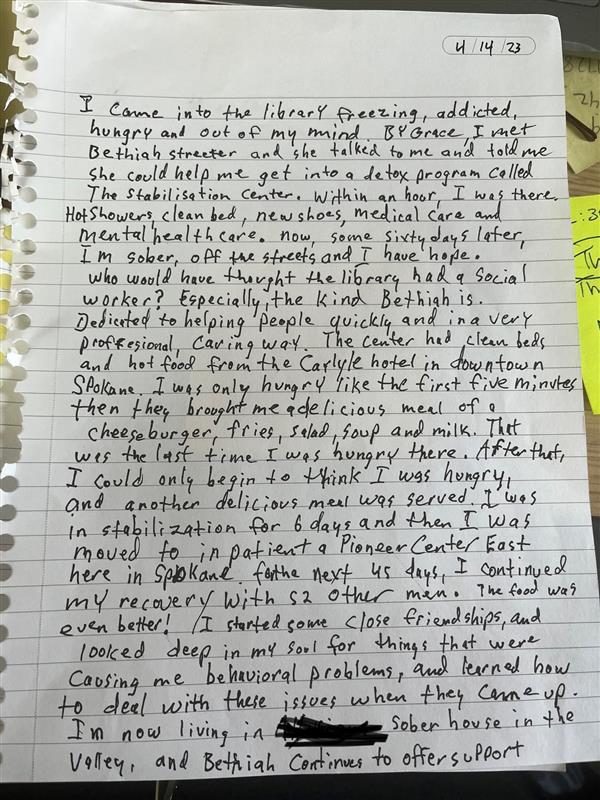 4/14/23
I came into the library freezing, addicted,
hungry and out of my mind. BY Grace I met
Bethiah streeter and she talked to me and told me
she could help me get into a detox program called
The stabilisation Center. Within an hour, I was there.
Hot showers, clean bed, new shoes, medical care and
mental health care. now, some sixty days later,
I'm sober, off the streets and I have hope.
who would have thought the library had a social
worker? Especially, the kind Bethiah is.
Dedicated to helping people quickly and in a very
proffesional, caring way. The center had clean beds
and hot food from the Carlyle hotel in downtown
Spokane. I was only hungry like the first five minutes
then they brought me a delicious meal of a
cheeseburger, fries, salad, soup and milk. That
was the last time I was hungry there. After that,
I could only begin to think I was hungry,
and another delicious meal was served. I was
in stabilization for 6 days and then I was
moved to in patient a Pioneer Center East
here in Spokane. for the next 45 days, I continued
my recovery with 52 other men. The food was
even better! I started some close friendships, and
looked deep in my soul for things that were
causing me behavioral problems, and learned how
to deal with these issues when they came up.
I'm now living in sober house in the
Valley, and Bethiah continues to offer support